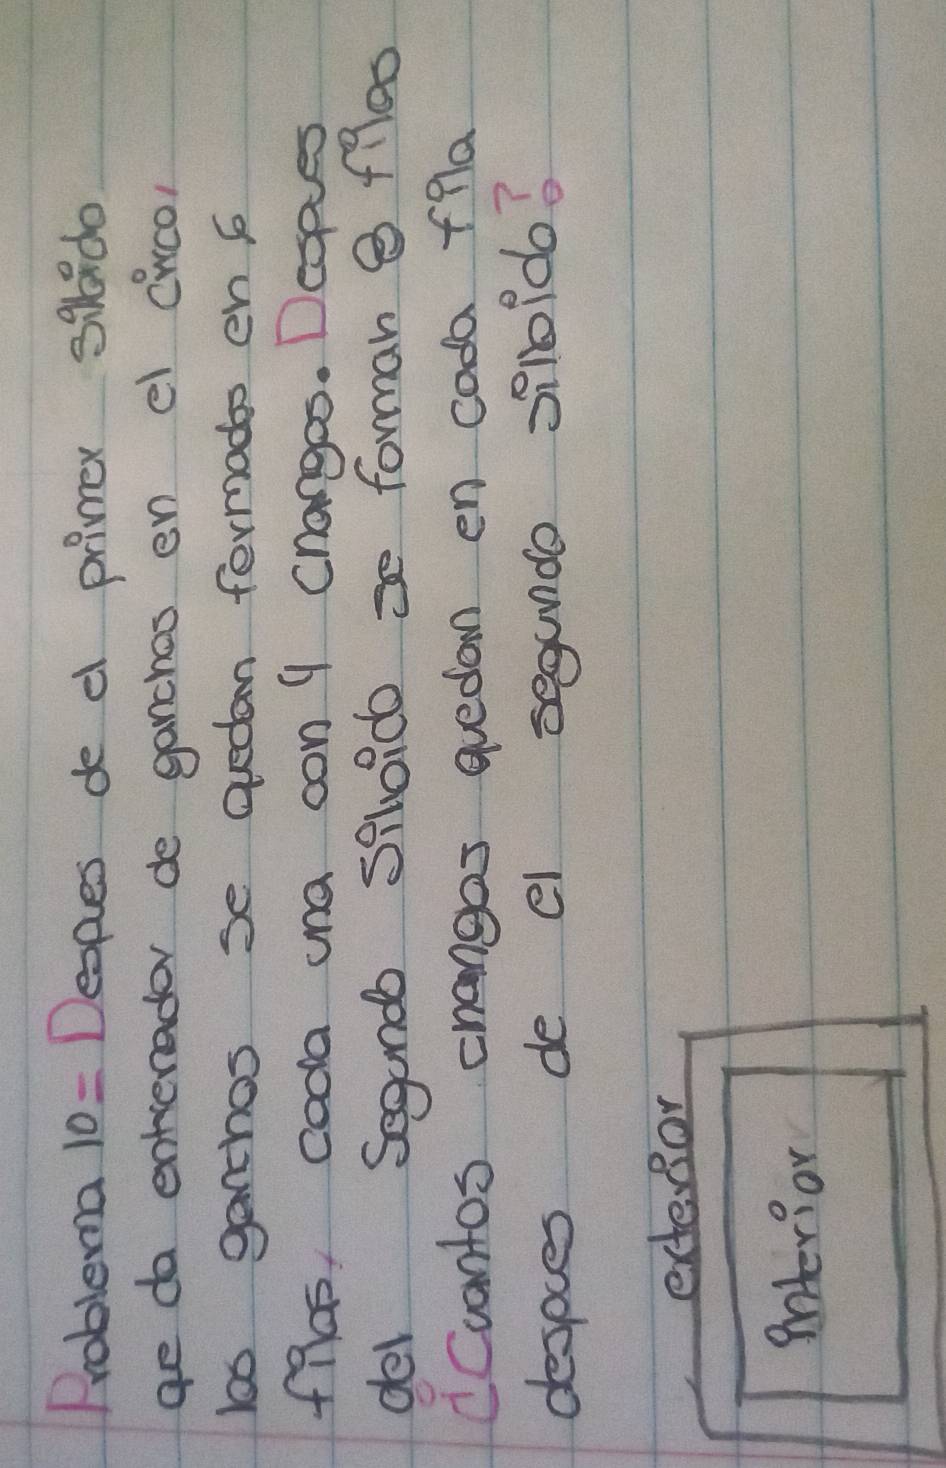 Problema 10 = Despues de el primer silbido
que da entrenador de ganchos en el circo,
los ganchos se quedan formados en 6
filas, cada una con 4 changos. Despues
del segundo silbido se forman 8 filas
¿Cuantos changos quedan en cada fila
despues de el segundo silbido?
exterior
interior